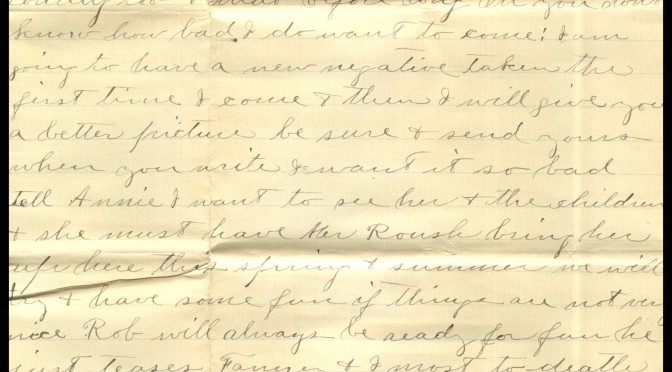 before long Oh you dont
know how bad I do want to come! I am
going to have a new negative taken the
first time I come & then I will give you
a better picture be sure & send yours
when you write I want it so bad
tell Annie I want to see her & the children
& she must have Mr Roush bring her
up here this spring & summer we will
try & have some fun if things are not very
nice Rob will always be ready for fun he
just teases Fanner & I most to death